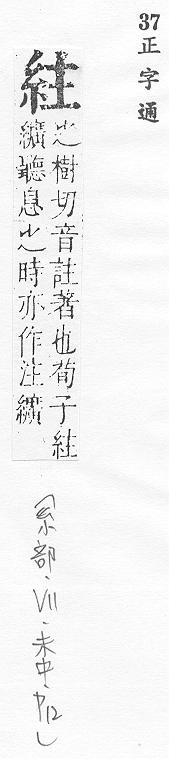 37正字通
紸
之樹切音註著也荀子紸
纊聽息之時亦作注纊
(糸部·VII·未中·P12)